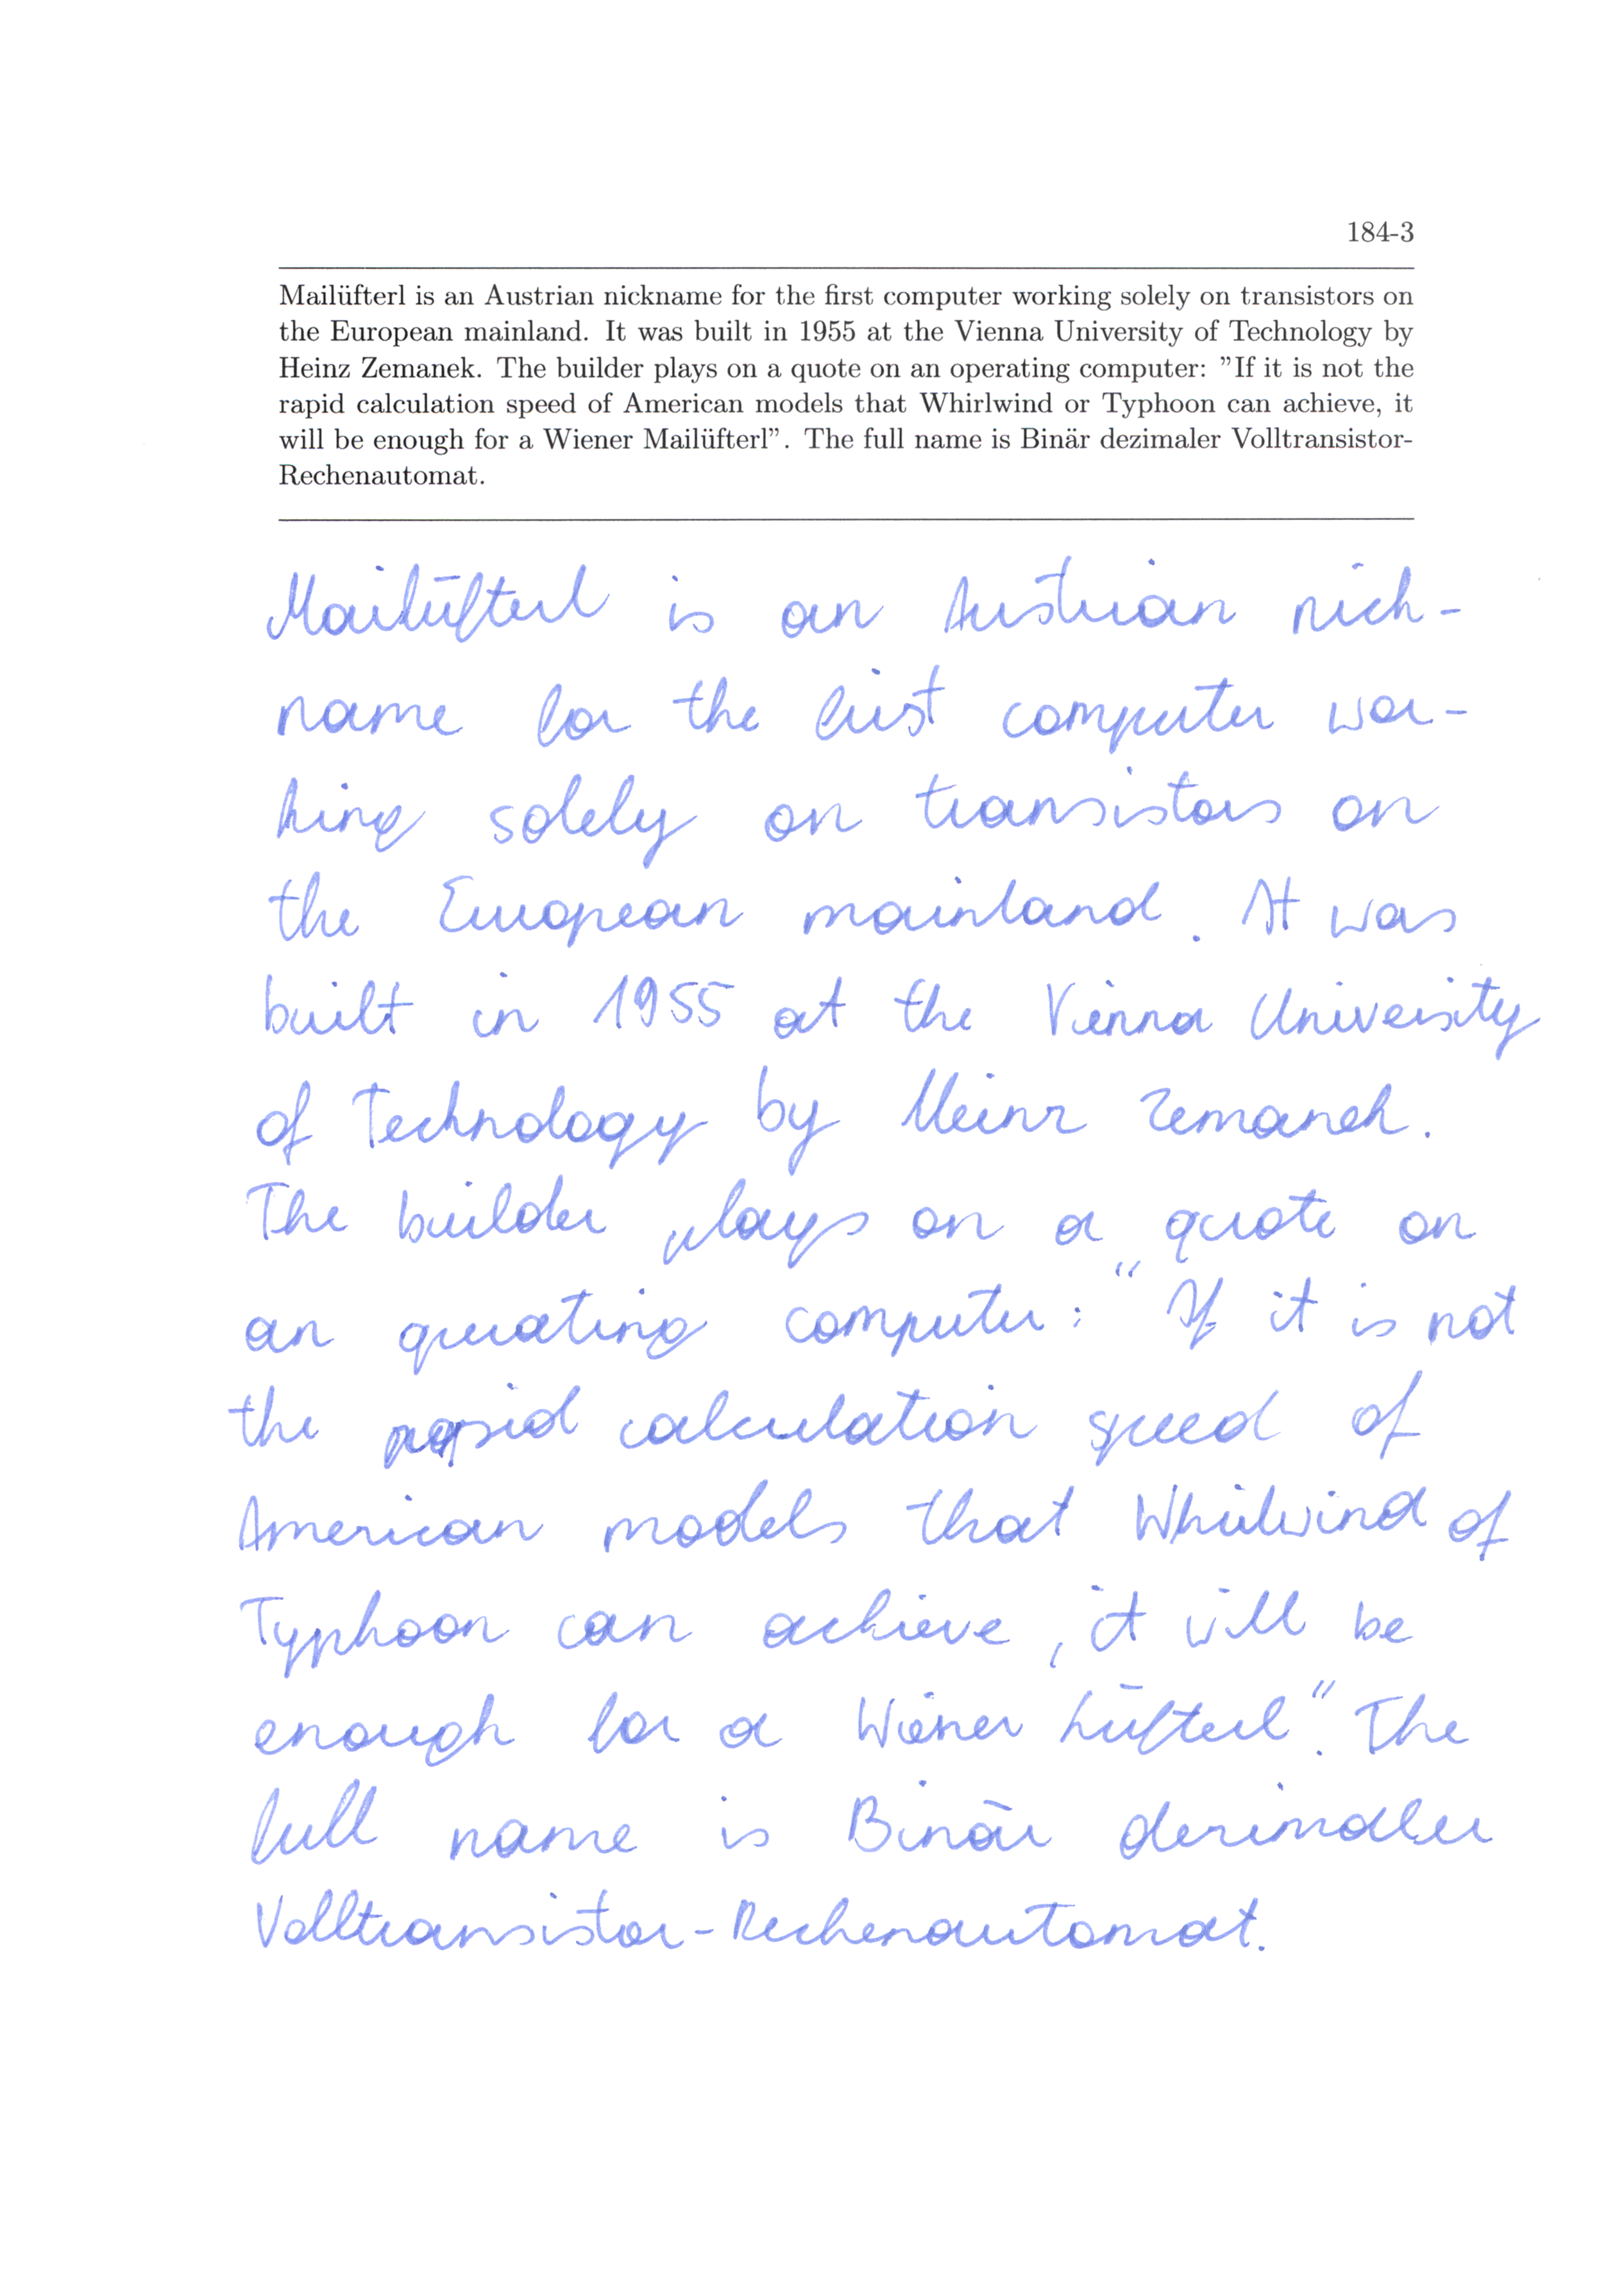 184-3
Mailüfterl is an Austrian nickname for the first computer working solely on transistors on
the European mainland. It was built in 1955 at the Vienna University of Technology by
Heinz Zemanek. The builder plays on a quote on an operating computer: "If it is not the
rapid calculation speed of American models that Whirlwind or Typhoon can achieve, it
will be enough for a Wiener Mailüfterl". The full name is Binär dezimaler Volltransistor-
Rechenautomat.
Mailüfterl is an Austrian nick-
name for the first computer wor-
king solely on transistors on
the European mainland. It was
built in 1955 at the Vienna University
of Technology by Heinz Zemanek.
The builder plays on a quote on
an operating computer: "If it is not
the rapid calculation speed of
American models that Whirlwind of
Typhoon can achieve, it will be
enough for a Wiener Lüfterl". The
full name is Binär dezimaler
Volltransistor-Rechenautomat.